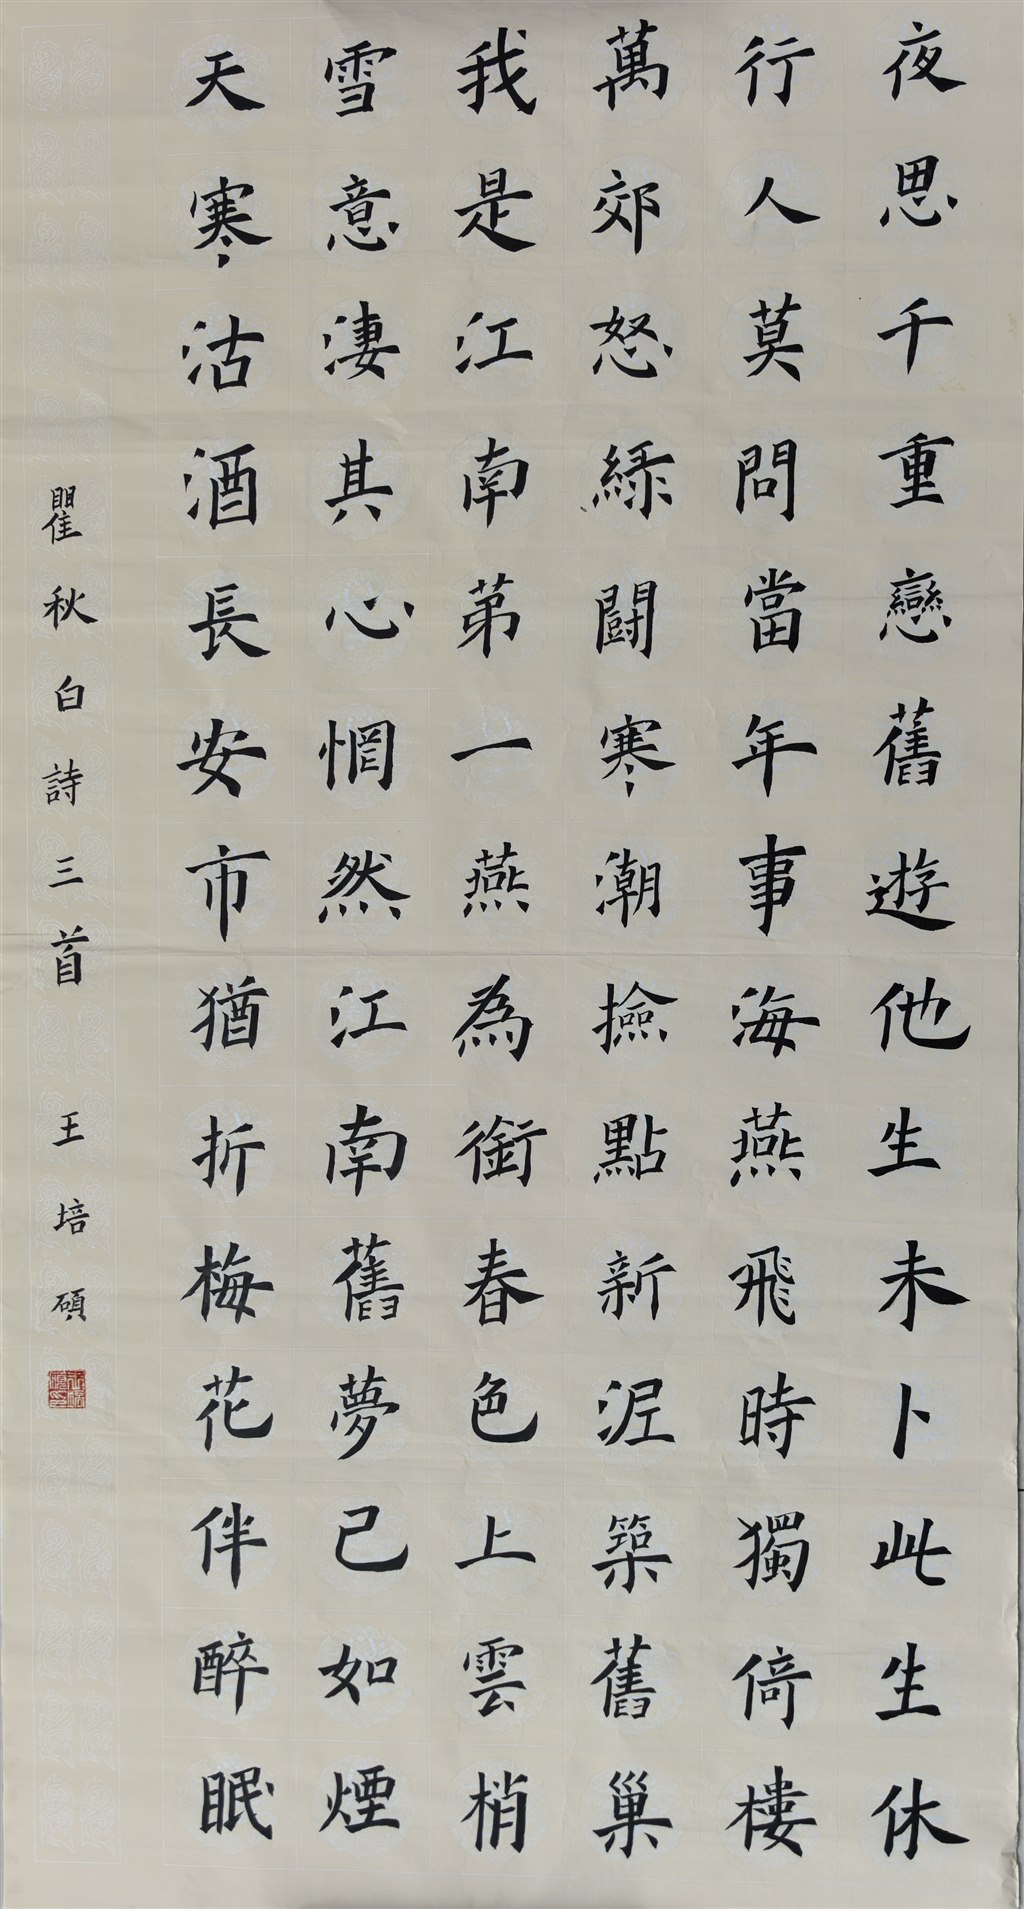 夜思千重戀舊遊他生未卜此生休
行人莫問當年事海燕飛時獨倚樓
萬郊怒綠鬪寒潮撿點新泥築舊巢
我是江南第一燕為銜春色上雲梢
雪意淒其心惘然江南舊夢已如煙
天寒沽酒長安市猶折梅花伴醉眠
瞿秋白詩三首 王培碩